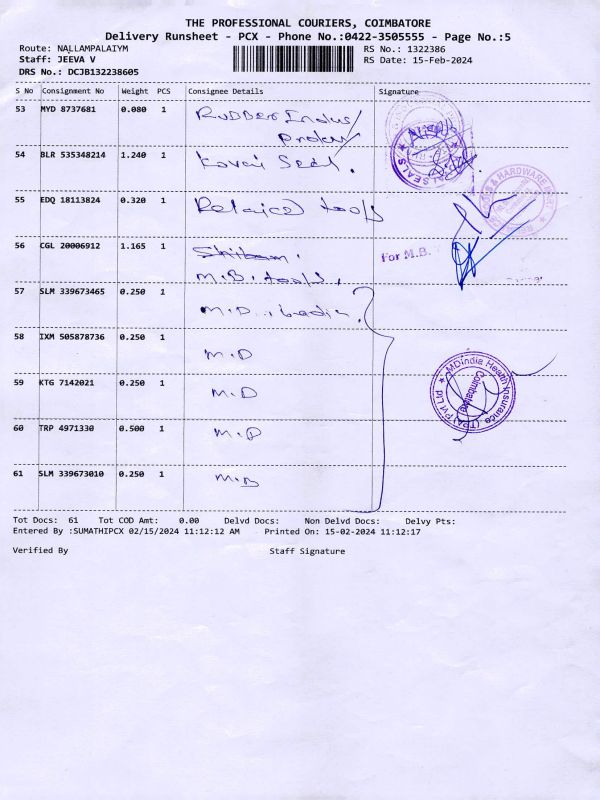 THE PROFESSIONAL COURIERS, COIMBATORE
Delivery Runsheet - PCX - Phone No.:0422-3505555 - Page No.:5
Route: NALLAMPALAIYM RS No.: 1322386
Staff: JEEVA V RS Date: 15-Feb-2024
DRS No.: DCJB132238605
S No Consignment No Weight PCS Consignee Details Signature
53 MYD 8737681 0.080 1 Rubber Indus/
54 BLR 535348214 1.240 1 Kovai Seal.
SEALS
55 EDQ 18113824 0.320 1 tools
& HARDWARE MART
56 CGL 20006912 1.165 1
For M.B.
M.B. tools.
57 SLM 339673465 0.250 1 M.D. India.
58 IXM 505878736 0.250 1 M.D
59 KTG 7142021 0.250 1 M.D
MDIndia Health Insurance (TPA) Pvt Ltd
Coimbatore
60 TRP 4971330 0.500 1 M.D
61 SLM 339673010 0.250 1 M.D
Tot Docs: 61 Tot COD Amt: 0.00 Delvd Docs: Non Delvd Docs: Delvy Pts:
Entered By :SUMATHIPCX 02/15/2024 11:12:12 AM Printed On: 15-02-2024 11:12:17
Verified By Staff Signature